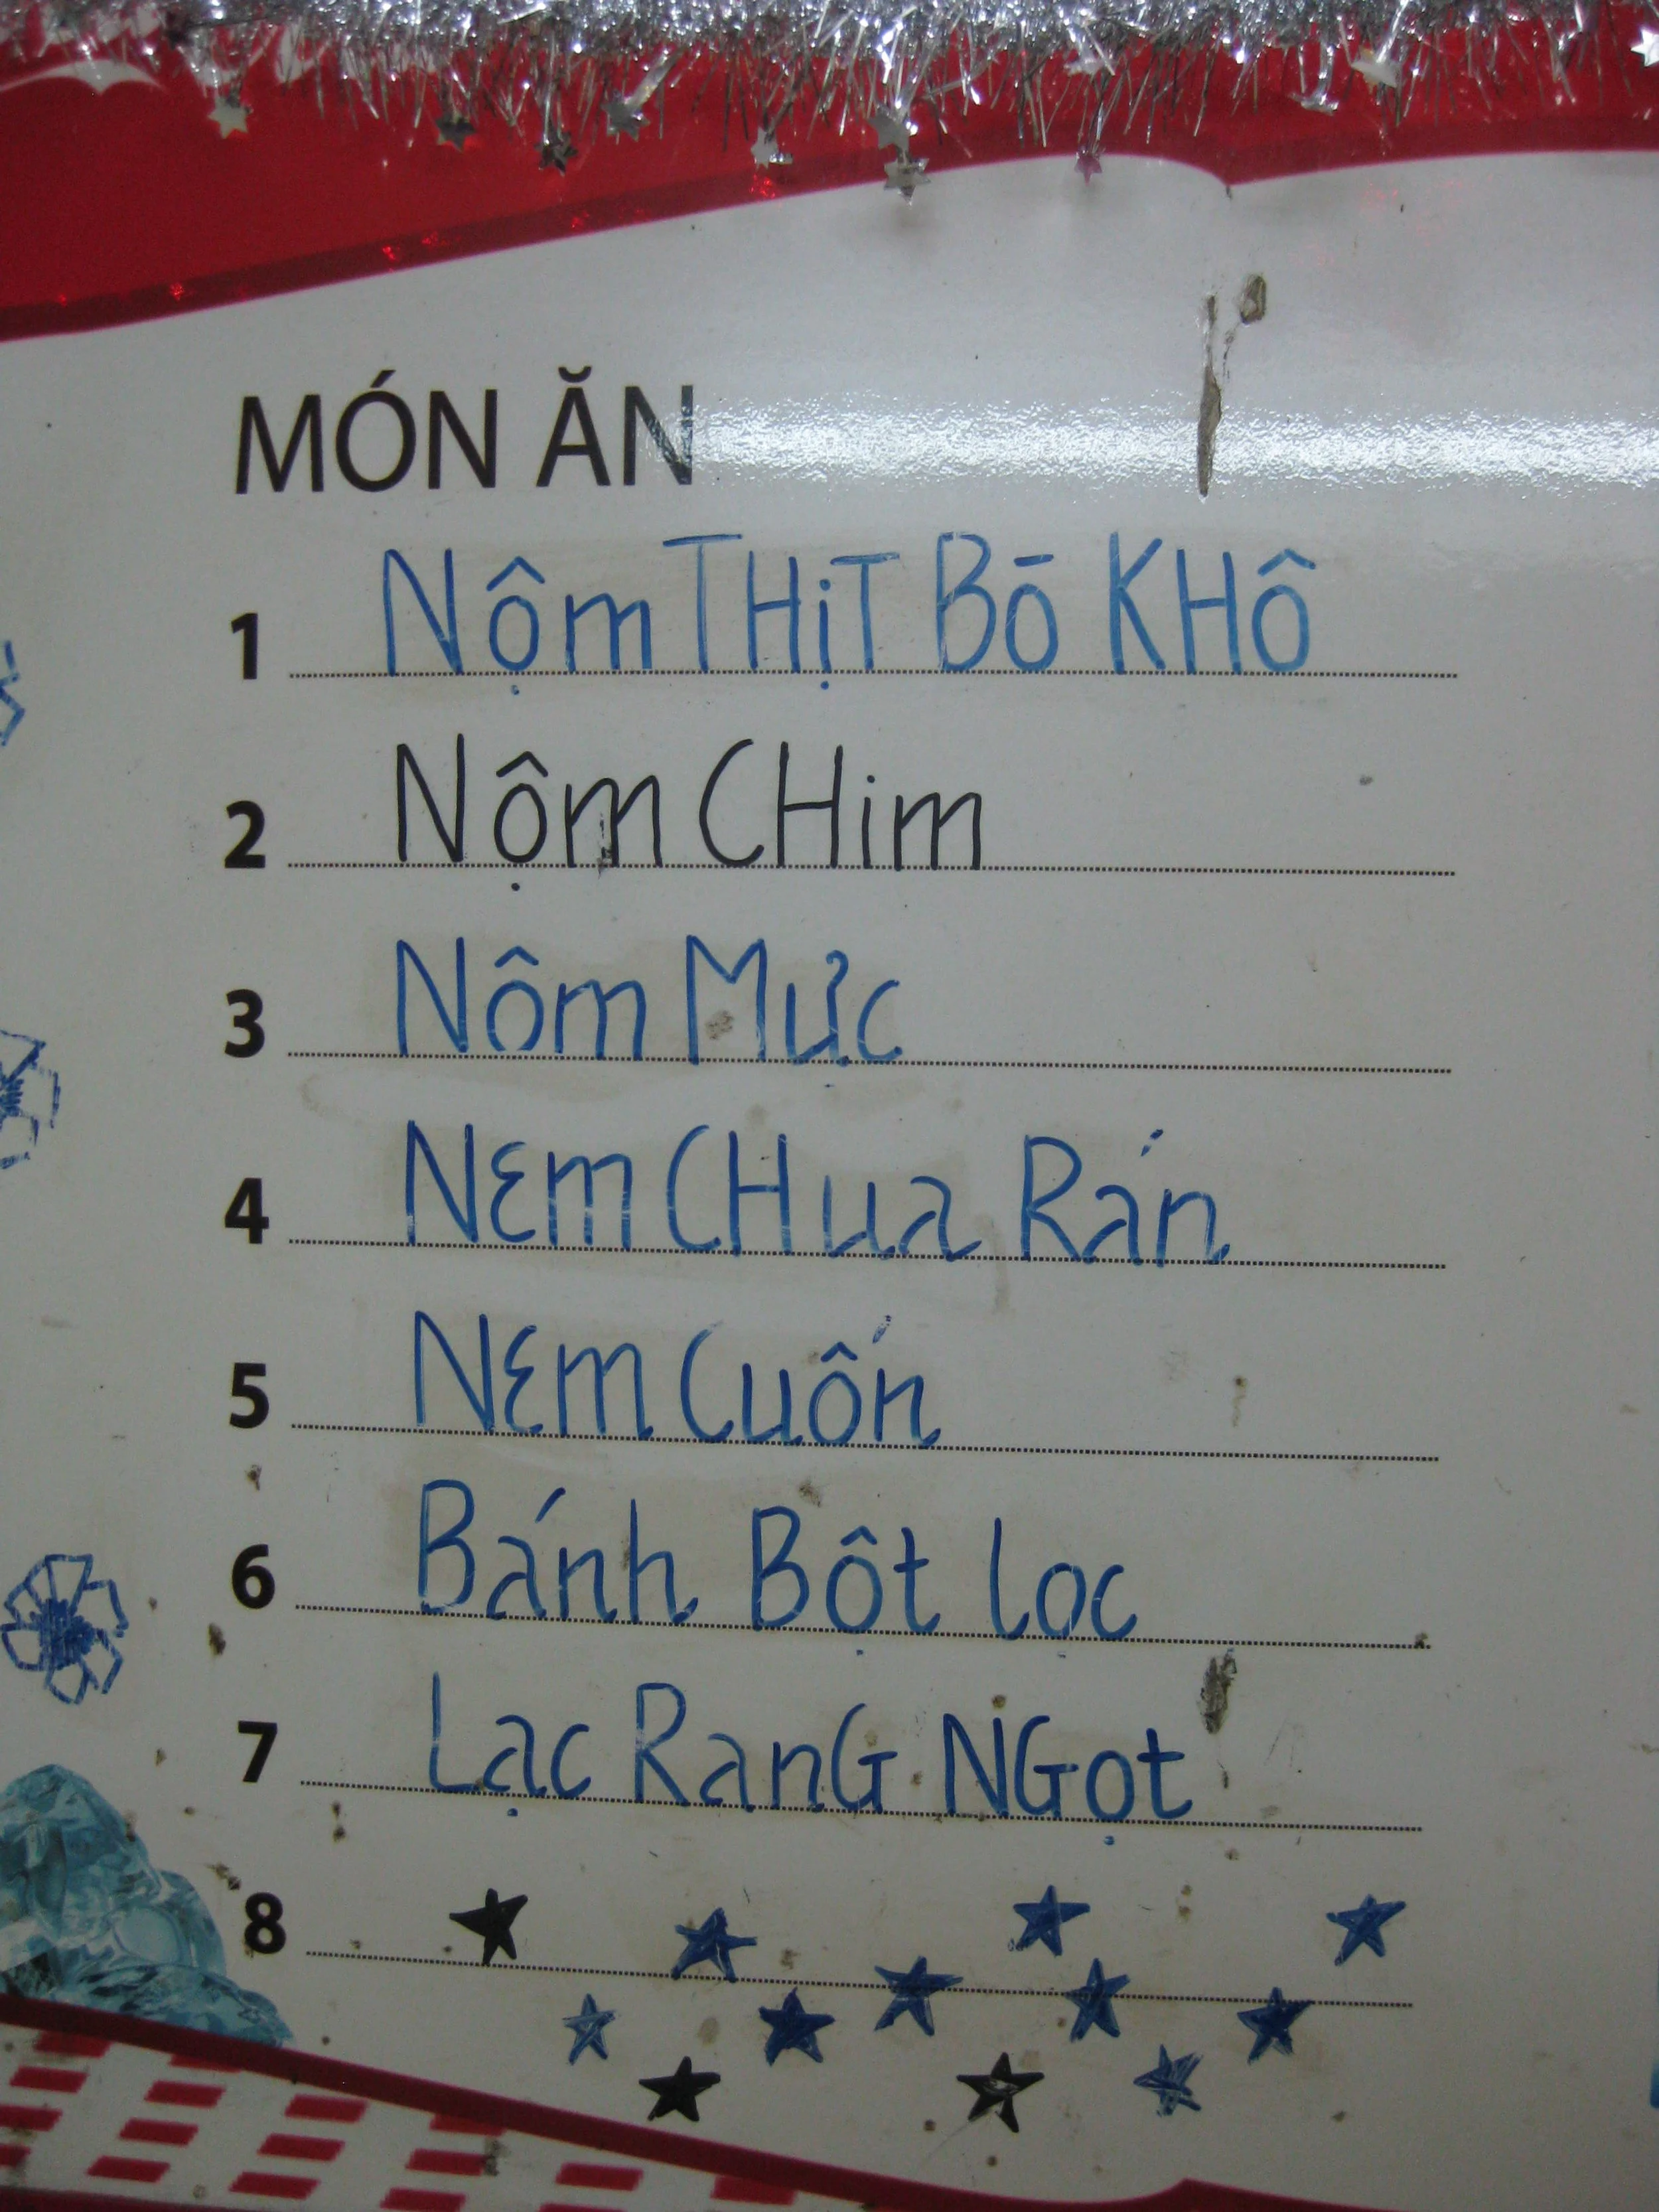 MÓN ĂN
1 Nộm THịT Bō KHÔ
2 Nộm CHim
3 Nôm Mực
4 NEm CHua Rán
5 NEm Cuốn
6 Bánh Bột lọc
7 Lạc RanG NGọt
8